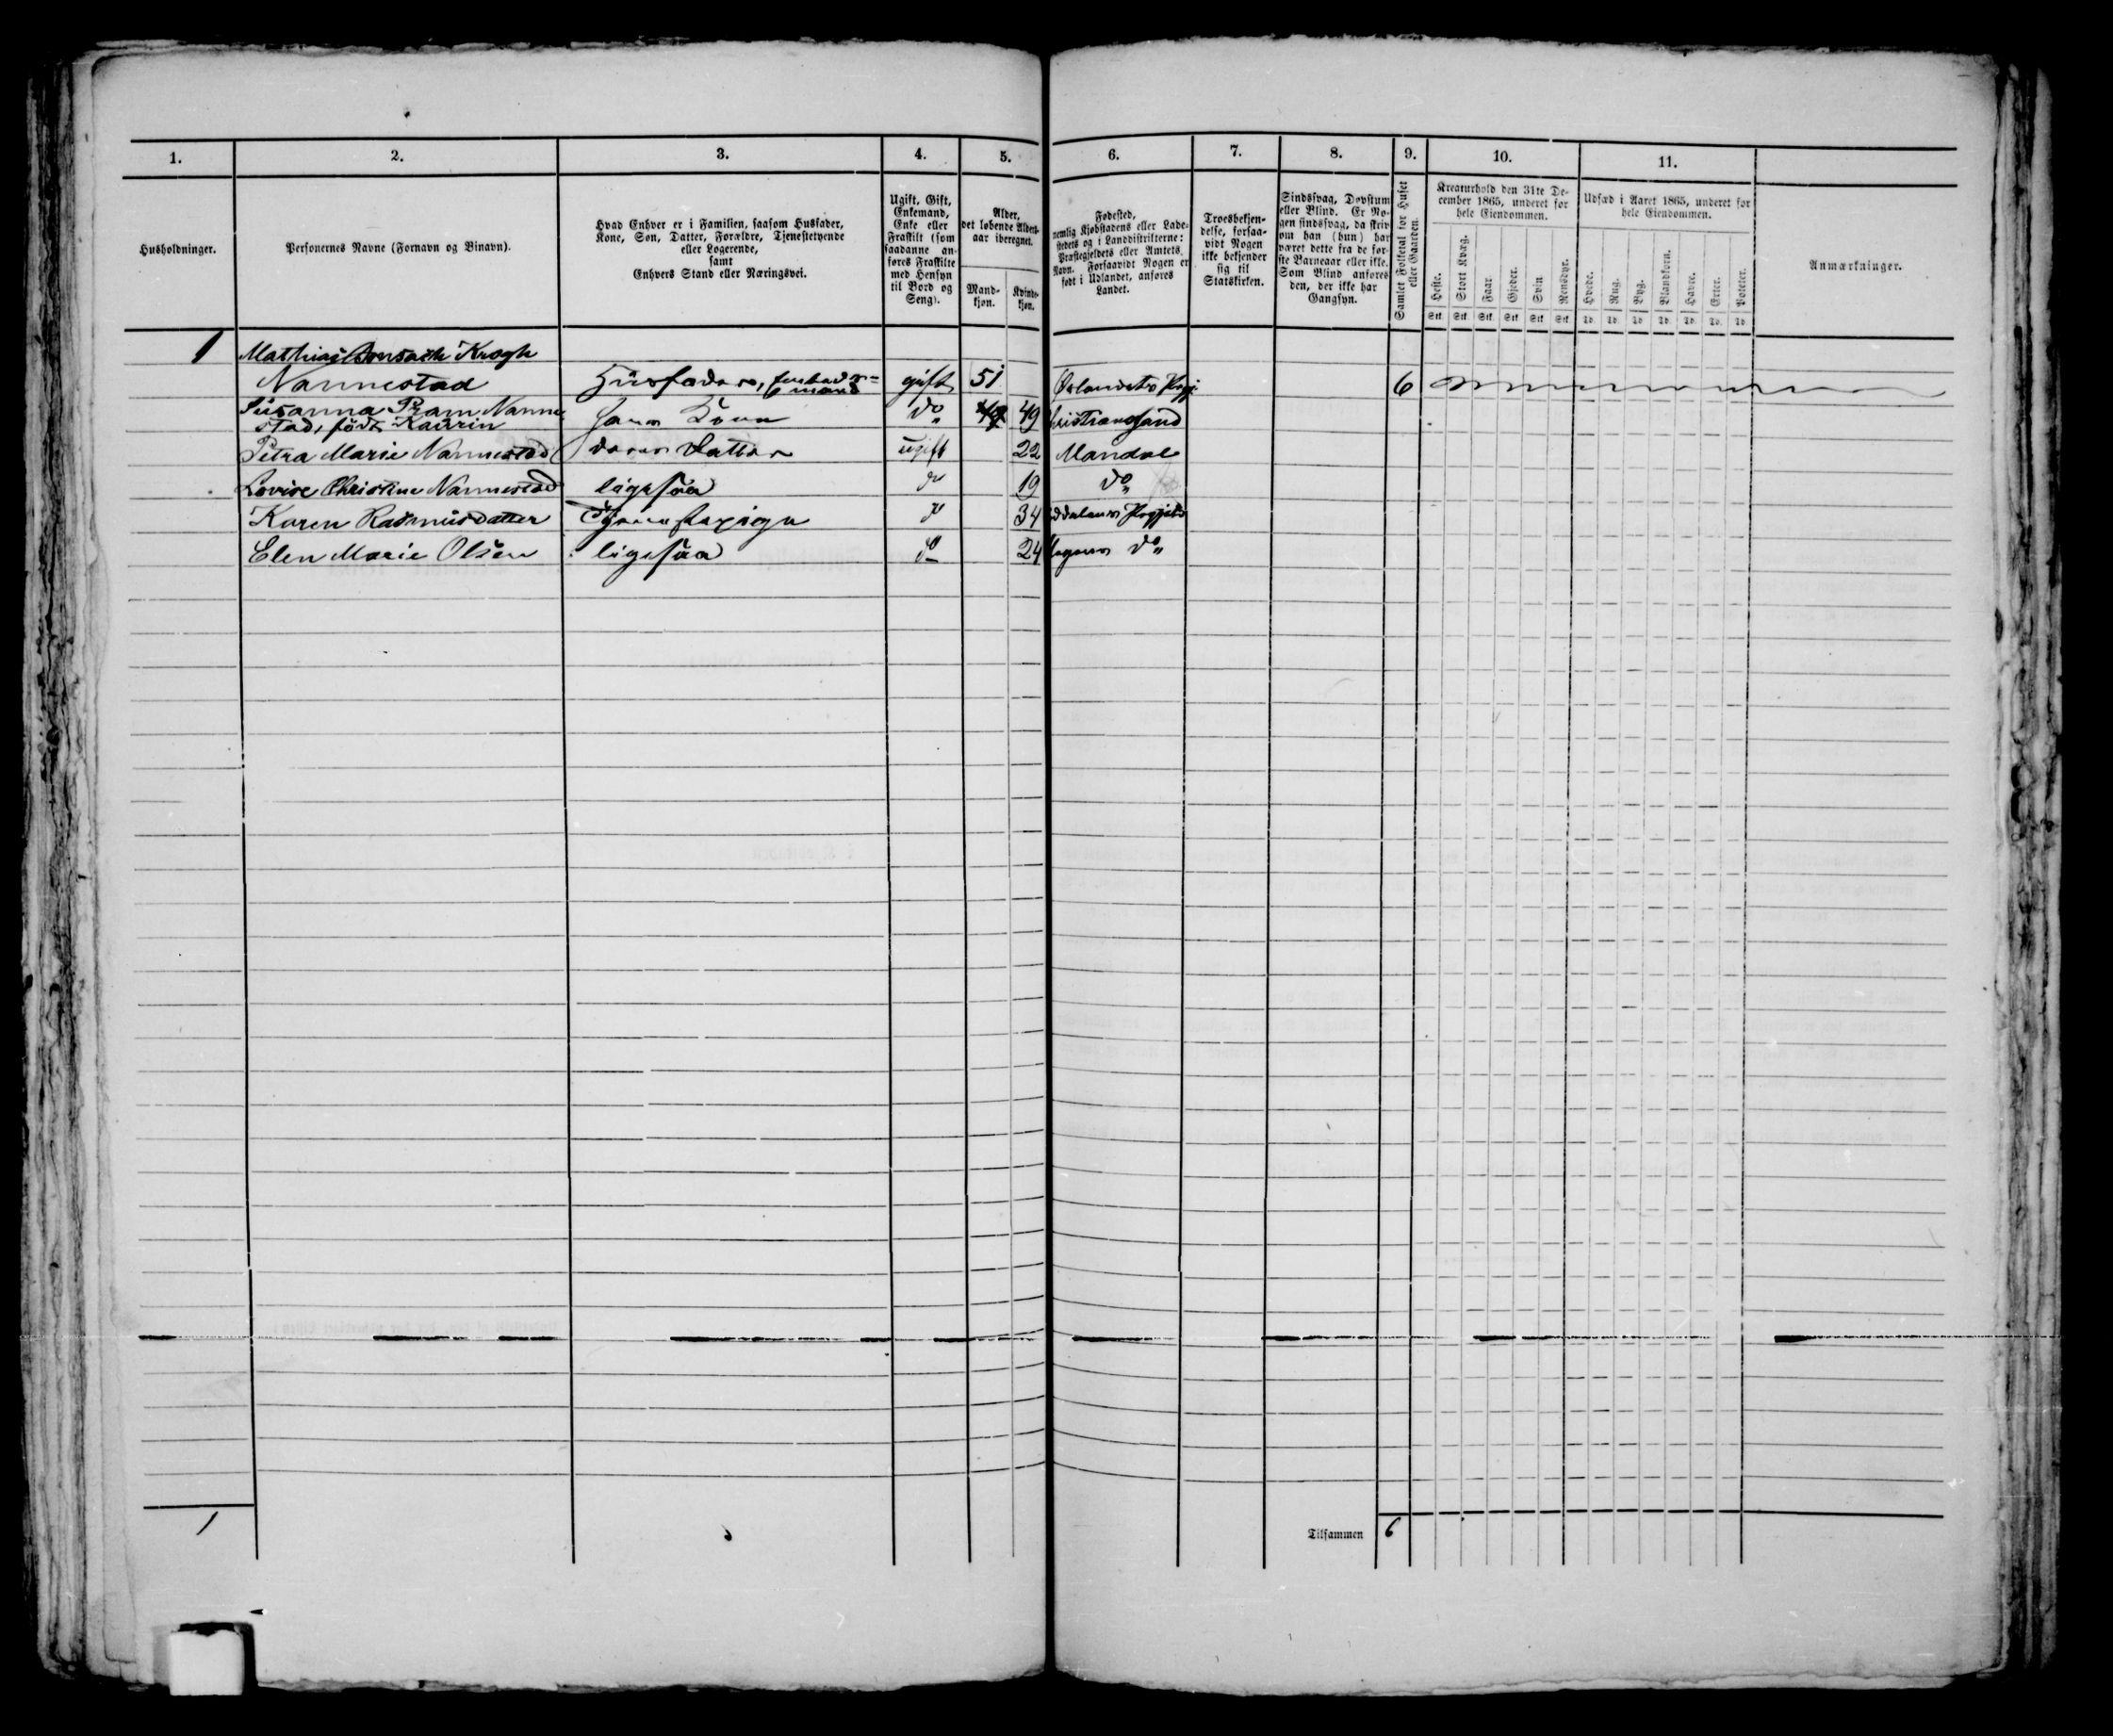 1. 2. 3. 4. 5. 6. 7. 8. 9. 10. 11.
Husholdninger.
Personernes Navne (Fornavn og Binavn).
Hvad Enhver er i Familien, saasom Husfader,
Kone, Søn, Datter, Forældre, Tjenestetyende
eller Logerende,
samt
Enhvers Stand eller Næringsvei.
Ugift, Gift,
Enkemand,
Enke eller
Fraskilt (som
saadanne an-
føres Fraskilte
med Hensyn
til Bord og
Seng).
Alder,
det løbende Alders-
aar iberegnet.
Mand-
kjøn.
Kvinde-
kjøn.
Fødested,
nemlig Kjøbstadens eller Lade-
stedets og i Landdistrikterne:
Præstegjeldets eller Amtets
Navn. Forsaavidt Nogen er
født i Udlandet, anføres
Landet.
Troesbekjen-
delse, forsaa-
vidt Nogen
ikke bekjender
sig til
Statskirken.
Sindssvag, Døvstum
eller Blind. Er No-
gen sindssvag, da skriv
om han (hun) har
været dette fra de før-
ste Barneaar eller ikke.
Som Blind anføres
den, der ikke har
Gangsyn.
Samlet Folketal for Huset
eller Gaarden.
Kreaturhold den 31te De-
cember 1865, underet for
hele Eiendommen.
Heste. Stort Kvæg. Faar. Gjeder. Svin. Rensdyr.
Stk. Stk. Stk. Stk. Stk. Stk.
Udsæd i Aaret 1865, underet for
hele Eiendommen.
Hvede. Rug. Byg. Blandkorn. Havre. Erter. Poteter.
Td. Td. Td. Td. Td. Td. Td.
Anmærkninger.
1 Mathias Bonsach Krogh
Nannestad Husfader, gift 51 Ørlandets Prgj. 6
Susanna Pram Nanne
stad, født Kaurin hans Kone do 49 49 Christiansand
Petra Marie Nannestad deres Datter ugift 22 Mandal
Lovise Christine Nannestad ligesaa do 19 do
Karen Rasmusdatter Tjenestepige do 34 Prgjeld
Elen Marie Olsen ligesaa do 24 do
1
Tilsammen 6